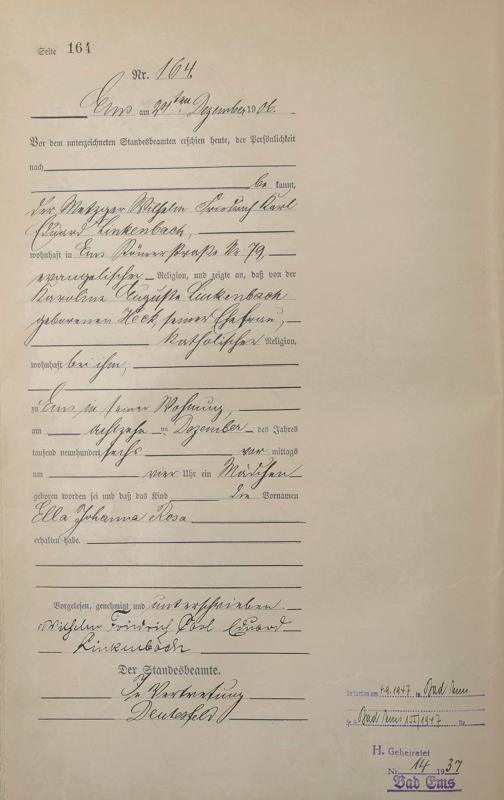 Seite 164
Nr. 164.
Ems am 21ten Dezember 1906.
Vor dem unterzeichneten Standesbeamten erschien heute, der Persönlichkeit
nach
be kannt,
der Metzger Wilhelm Friedrich Karl
Eduard Linkenbach,
wohnhaft in Ems Römerstraße Nr 79,
evangelischer Religion, und zeigte an, daß von der
Karoline Auguste Linkenbach
geborenen Heck, seiner Ehefrau,
katholischer Religion,
wohnhaft bei ihm,
zu Ems in seiner Wohnung,
am achtzehn ten Dezember des Jahres
tausend neunhundert sechs vor mittags
um vier Uhr ein Mädchen
geboren worden sei und daß das Kind die Vornamen
Ella Johanna Rosa
erhalten habe.
Vorgelesen, genehmigt und unterschrieben.
Wilhelm Friedrich Carl Eduard
Linkenbach
Der Standesbeamte.
In Vertretung
am 4.9.1947 in Bad Ems
Bad Ems 1947 Nr.
H. Geheiratet
Nr. 14 1937
Bad Ems